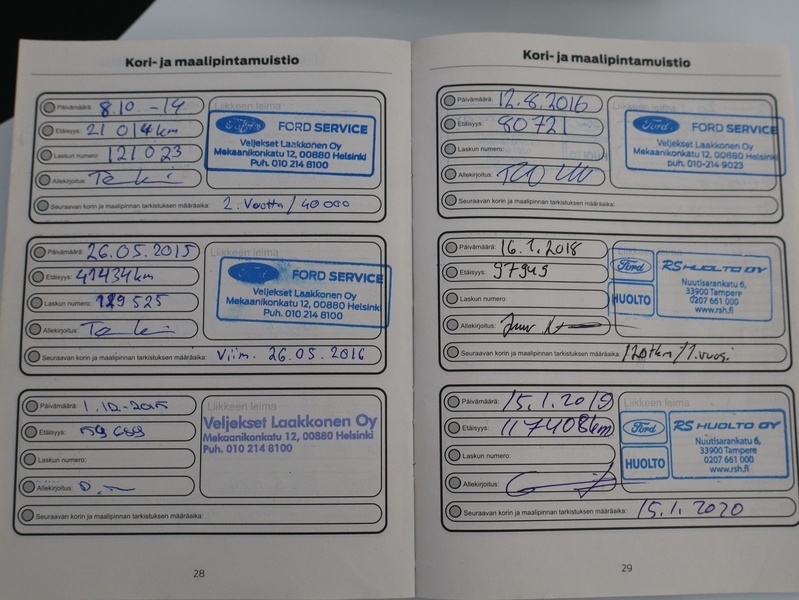 Kori- ja maalipintamuistio
Päivämäärä: 8.10 -14
Liikkeen leima
Etäisyys: 21 014 km
Laskun numero: 121023
Allekirjoitus:
Ford FORD SERVICE
Veljekset Laakkonen Oy
Mekaanikonkatu 12, 00880 Helsinki
Puh. 010 214 8100
Seuraavan korin ja maalipinnan tarkistuksen määräaika: 2. Vuotta / 40 000
Päivämäärä: 26.05.2015
Liikkeen leima
Etäisyys: 41434 km
Laskun numero: 129525
Allekirjoitus:
FORD SERVICE
Veljekset Laakkonen Oy
Mekaanikonkatu 12, 00880 Helsinki
Puh. 010 214 8100
Seuraavan korin ja maalipinnan tarkistuksen määräaika: Viim. 26.05.2016
Päivämäärä: 1.10.-2015
Liikkeen leima
Etäisyys: 59 689
Laskun numero:
Allekirjoitus:
Veljekset Laakkonen Oy
Mekaanikonkatu 12, 00880 Helsinki
Puh. 010 214 8100
Seuraavan korin ja maalipinnan tarkistuksen määräaika:
28
Kori- ja maalipintamuistio
Päivämäärä: 12.8.2016
Etäisyys: 80721
Laskun numero:
Allekirjoitus:
Ford FORD SERVICE
Veljekset Laakkonen Oy
Mekaanikonkatu 12, 00880 Helsinki
puh. 010-214 9023
Seuraavan korin ja maalipinnan tarkistuksen määräaika:
Päivämäärä: 16.1.2018
Etäisyys: 97945
Laskun numero:
Allekirjoitus:
Ford
HUOLTO
RS HUOLTO OY
Nuutisarankatu 6,
33900 Tampere
0207 661 000
www.rsh.fi
Seuraavan korin ja maalipinnan tarkistuksen määräaika: /20tkm/1.vuosi
Päivämäärä: 15.1.2019
Etäisyys: 117408km
Laskun numero:
Allekirjoitus:
Ford
HUOLTO
RS HUOLTO OY
Nuutisarankatu 6,
33900 Tampere
0207 661 000
www.rsh.fi
Seuraavan korin ja maalipinnan tarkistuksen määräaika: 15.1.2020
29